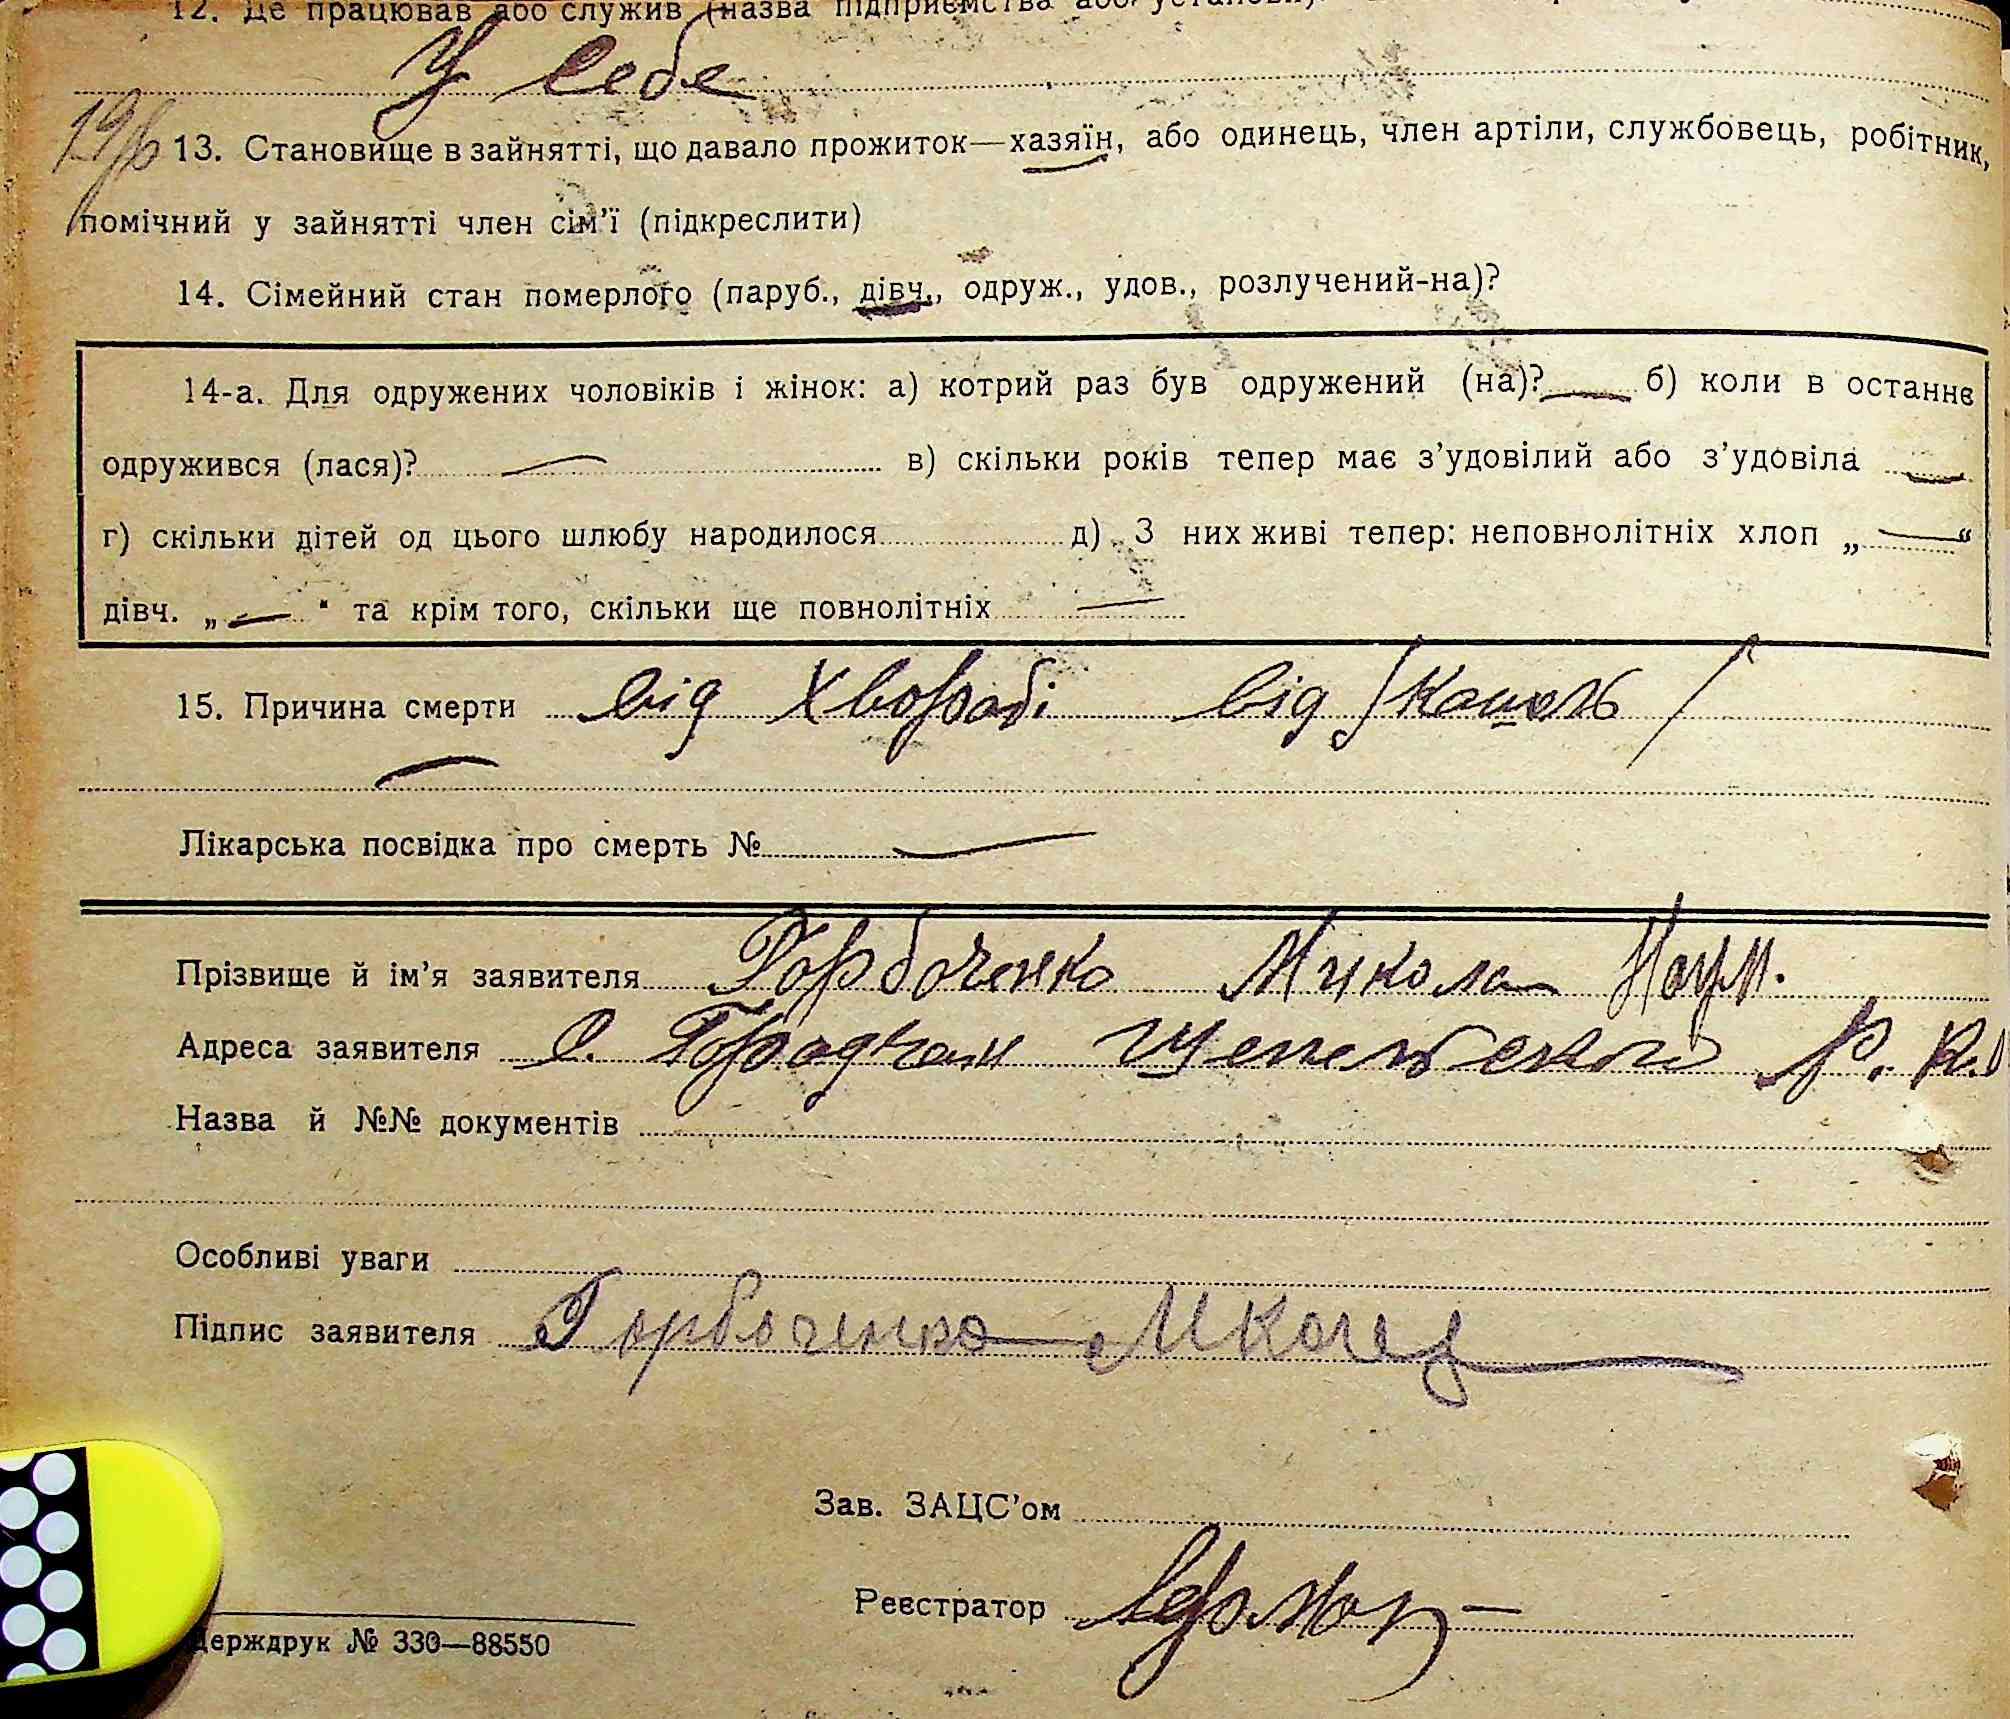 12. Де працював або служив (назва підприємства або установи)
У себе
13. Становище в зайнятті, що давало прожиток—хазяїн, або одинець, член артіли, службовець, робітник,
помічний у зайнятті член сім’ї (підкреслити)
14. Сімейний стан померлого (паруб., дівч., одруж., удов., розлучений-на)?
14-а. Для одружених чоловіків і жінок: а) котрий раз був одружений (на)? — б) коли в останнє
одружився (лася)? — в) скільки років тепер має з’удовілий або з’удовіла —
г) скільки дітей од цього шлюбу народилося д) З них живі тепер: неповнолітніх хлоп „—“
дівч. „—“ та крім того, скільки ще повнолітніх —
15. Причина смерти від хвороби від /кашель/
—
Лікарська посвідка про смерть № —
Прізвище й ім’я заявителя Горбоченко Микола Наум.
Адреса заявителя с. Городчан Р.
Назва й №№ документів
Особливі уваги
Підпис заявителя Горбоченко
Зав. ЗАЦС’ом
Реєстратор
Держдрук № 330—88550